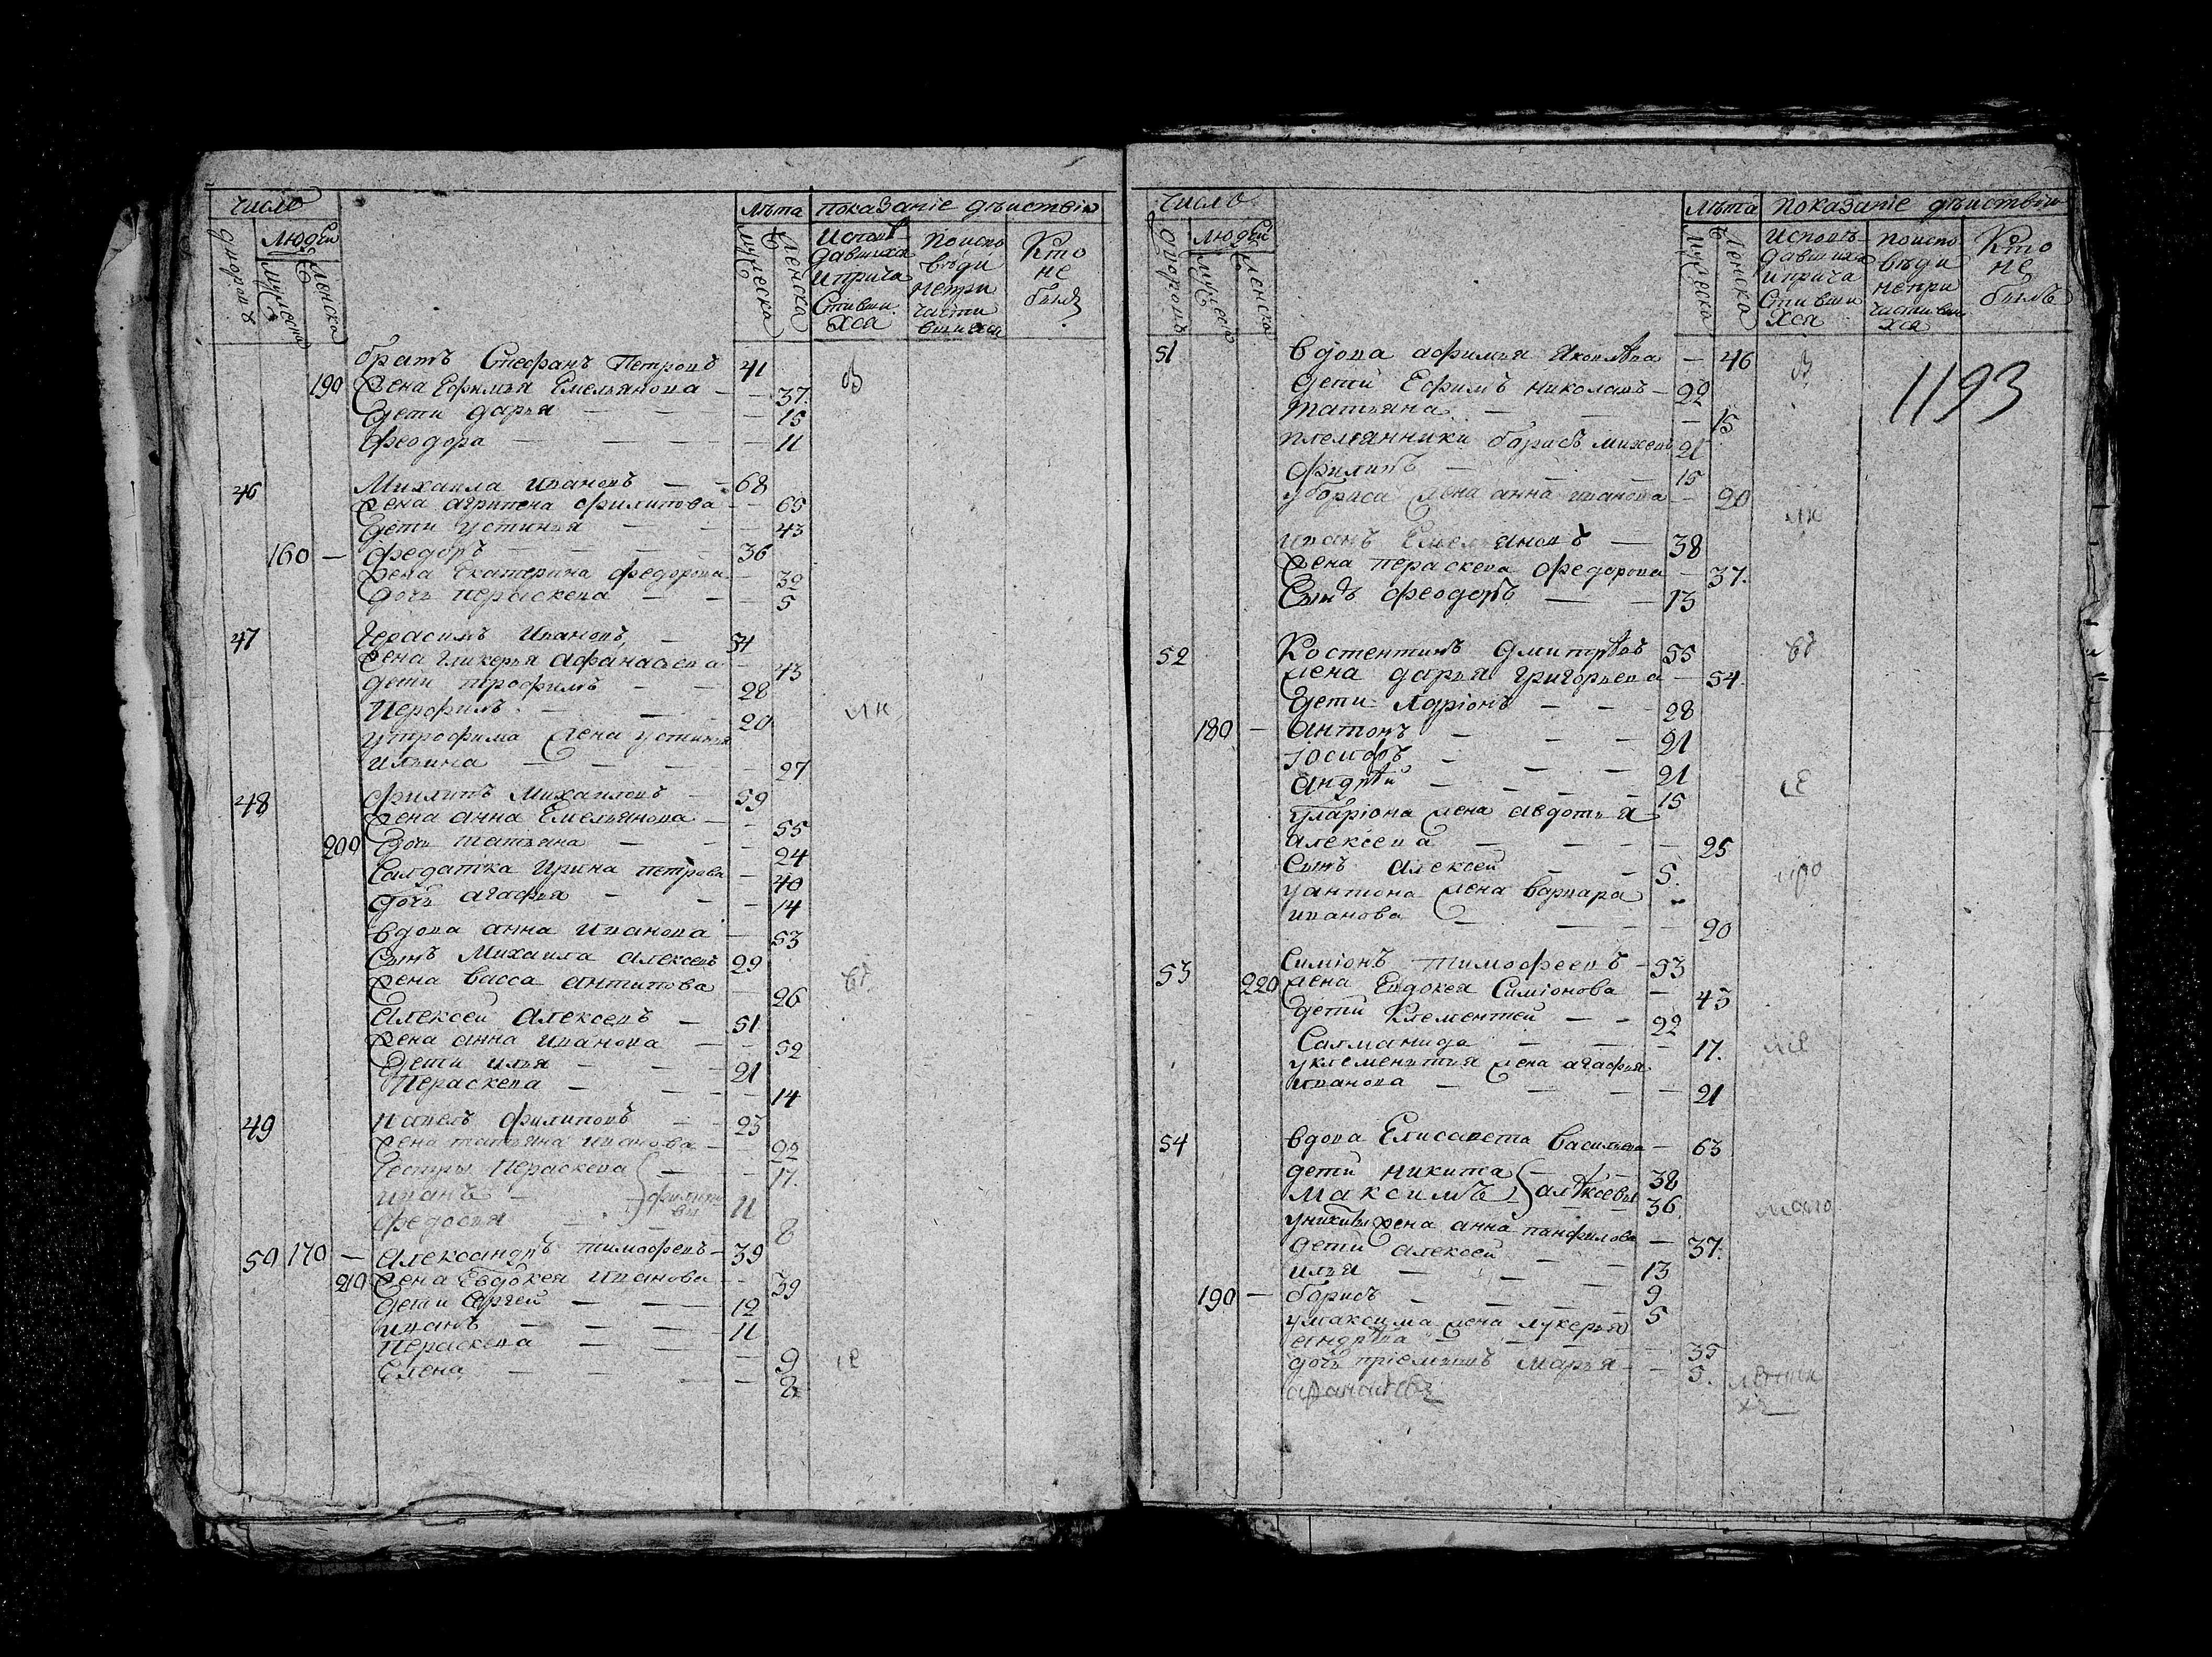 число
лѣта показаніе дѣиствіи
дворовъ
людей
мужеска
женска
мужеска
женска
Исповѣ
давшихся
и прича
стивши
хся
поиспо
вѣди
непри
части
вшихся
Кто
не
былъ
братъ Стефанъ Петровъ 41
190 Жена Ефимья Емельянова — — 37.
Дети дарья — — — 15
Феодора — — — — 11
46 Михаила ивановъ — — 68
Жена агрипена филипова — — 65
Дети Устинья — — — 43
160 — Федоръ — — — 36
Жена Екатерина федорова — 32
Дочь перъскева — — — 5
47 Герасимъ Ивановъ — 54
Жена гликерья афанасьева — 43
Дети трофимъ — — 28
Перфилъ — — — 20
утрофима жена устинья
ильина — — — — 27
48 Филипъ Михаиловъ — 59
Жена анна Емельянова — — 55
200 Дочь татьяна — — — 24
Салдатка Ирина петрова — 40
Дочь агафья — — — 14
вдова анна иванова — 53
Сынъ Михаила алексеевъ 29
Жена васса антипова — 26
Алексеи алексеевъ — 51
Жена анна иванова — — 52
Дети илья — — — 21
Пераскева — — — — 14
49 Павелъ филиповъ — — 23
Жена татьяна иванова — — 22
Сестры Пераскева — — 17.
иванъ — филипо
вы 11
федосья — 8
50 170 — Александръ тимофеевъ — 39
210 Жена Евдокея иванова — — 39
Дети Сергей — — — 12
иванъ — — — — 11
Пераскева — — — 9
Елена — — — — 2
число
лѣта показаніе дѣиствіи
дворовъ
людей
мужеска
женска
мужеска
женска
Исповѣ
давшихся
и прича
стивши
хся
поиспо
вѣди
непри
частивши
хся
Кто
не
былъ
1193
51 вдова афимья Яковлѣва — 46
Дети Ефимъ николаевъ — 22
татьяна — — 15
племянники борисъ михеевъ 21
филипъ — — — 15
у бориса жена анна иванова — 20
иванъ Емельяновъ — 38
Жена пераскева федорова — 37.
Сынъ феодоръ — — 13
52 Костентинъ Дмитрѣевъ 55
жена дарья григорьева — 54.
Дети Ларіонъ — — 28
180 — антонъ — — — 21
іосифъ — — — 21
андрѣй — — — — 15
уларіона жена авдотья
алексеева — — — — 25
Сынъ алексеи — — 5.
уантона жена варвара
иванова — — — — 20
53 Симіонъ тимофеевъ — 53
220 жена Евдокея Симіонова — 45
дети Клементей — — 22
Саламанида — — — 17.
уклементия жена агафья
иванова — — — — 21
54 вдова Елисавета васильева — 63
дети никита — — 38
Максимъ алѣксѣевы — — 36
уникиты жена анна панфилова — 37.
дети алексеи — — — 13
илья — — — — 9
190 — борисъ — — — 5
умаксима жена лукерья
андрѣева — — — — 35
дочь пріемышъ марья — — 5.